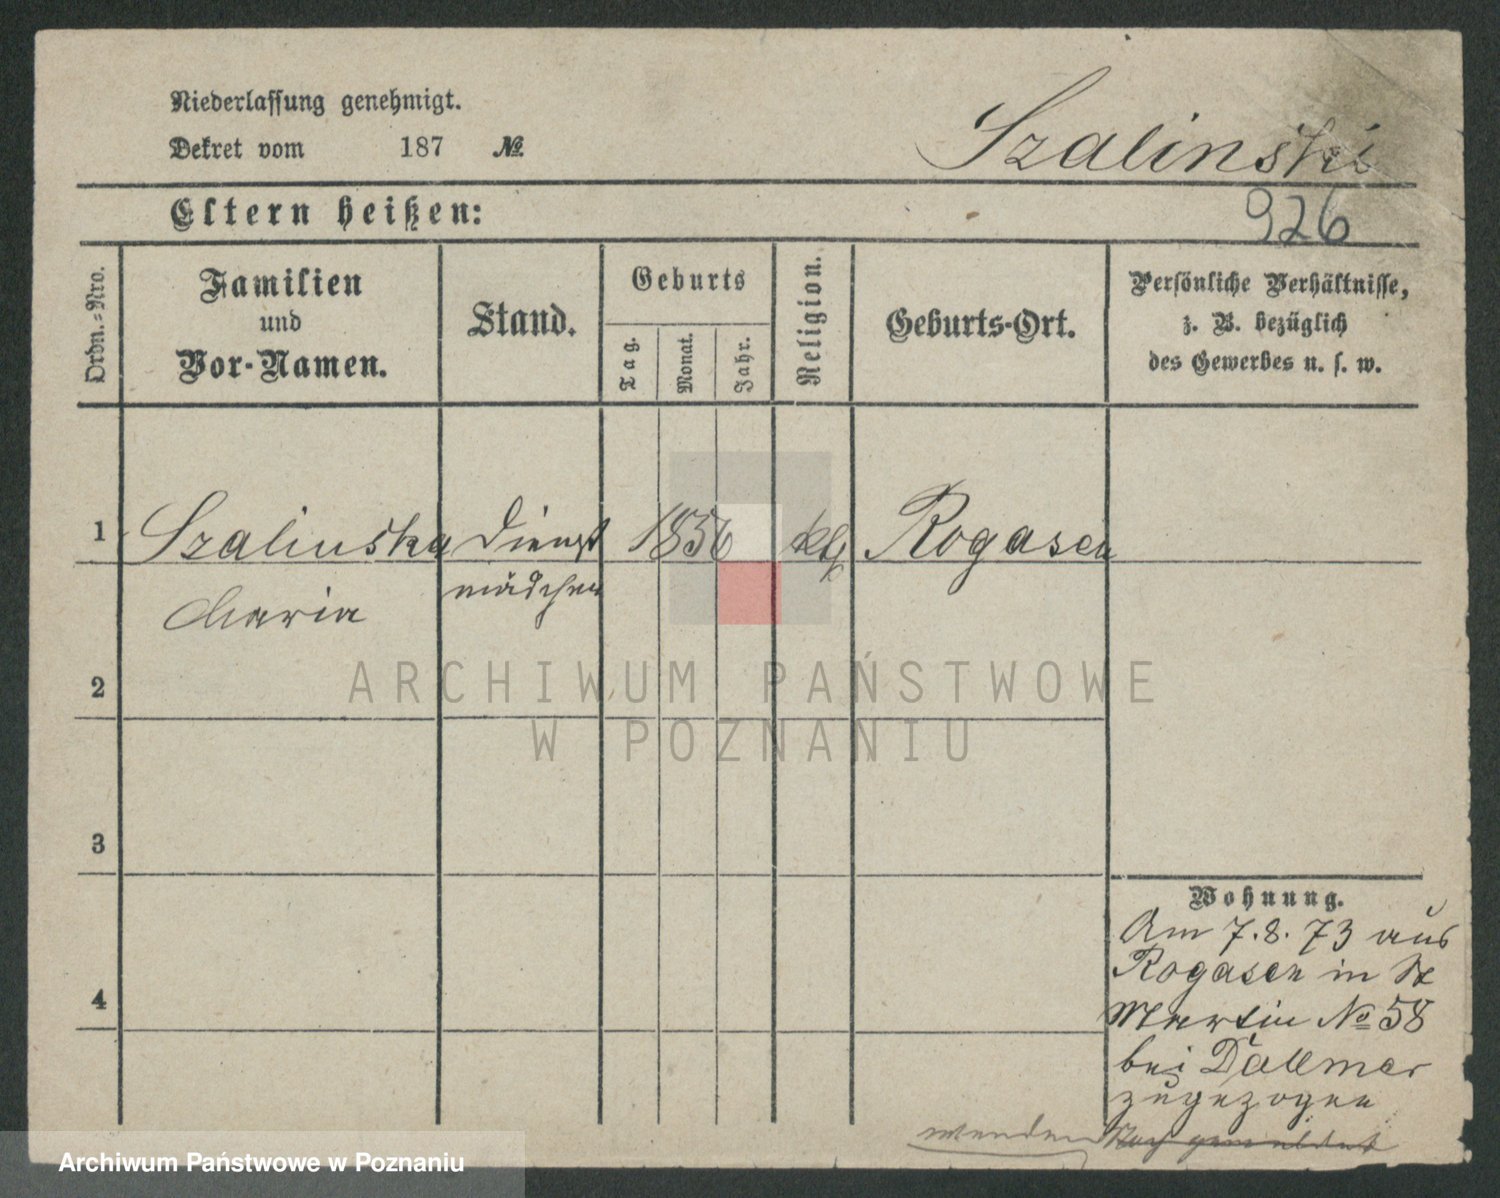 Niederlassung genehmigt.
Dekret vom 187 №
Szalinski
Eltern heißen:
926
Ordn.-Nro.
Familien
und
Vor-Namen.
Stand.
Geburts
Tag.
Monat.
Jahr.
Religion.
Geburts-Ort.
Persönliche Verhältnisse,
z. B. bezüglich
des Gewerbes u. s. w.
1 Szalinska Dienst 1856 kth Rogasen
Maria mädchen
2
3
4
Wohnung.
Am 7.8.73 aus
Rogasen in St
Martin № 58
bei Dallmer
zugezogen
wenden
ARCHIWUM PAŃSTWOWE
W POZNANIU
Archiwum Państwowe w Poznaniu